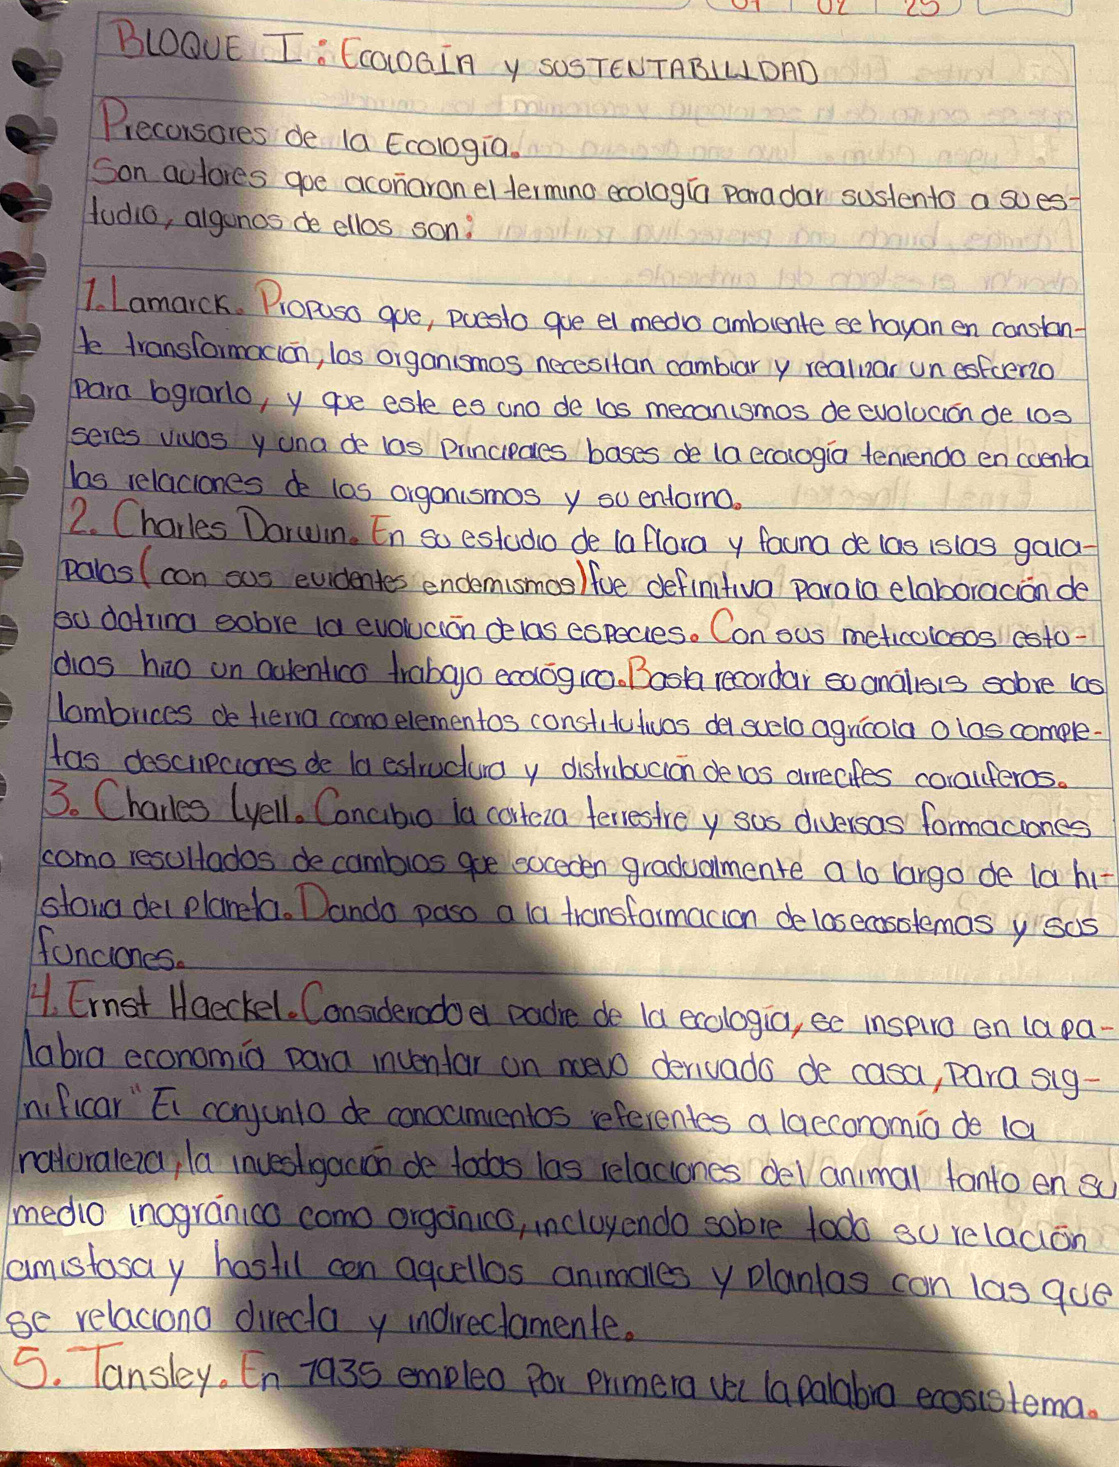 07 02 25
BLOQUE I: ECOLOGÍA y SOSTENTABILIDAD
Precursores de la Ecología.
Son autores que acoñaron el termino ecología para dar sustento a su es-
tudio, algunos de ellos son:
1. Lamarck. Propuso que, puesto que el medio ambiente se hayan en constan-
te transformación, los organismos necesitan cambiar y realizar un esfuerzo
para lograrlo, y que este es uno de los mecanismos de evolución de los
seres vivos y una de las principales bases de la ecología teniendo en cuenta
las relaciones de los organismos y su entorno.
2. Charles Darwin. En su estudio de la flora y fauna de las islas gala-
palos (con sus evidentes endemismos) fue definitiva para la elaboración de
su dotrina sobre la evolución de las especies. Con sus meticulosos estu-
dios hizo un autentico trabajo ecológico. Basta recordar su análisis sobre las
lombrices de tierra como elementos constitutivos del suelo agrícola o las comple-
tas descripciones de la estructura y distribución de los arrecifes coraliferos.
3. Charles Lyell. Concibio la corteza terrestre y sus diversas formaciones
como resultados de cambios que suceden gradualmente a lo largo de la hi-
storia del planeta. Dando paso a la transformacion de los ecosistemas y sus
funciones.
4. Ernst Haeckel. Considerado el padre de la ecología, se inspira en la pa-
labra economía para inventar un nuevo derivado de casa, para sig-
nificar "El conjunto de conocimientos referentes a la economía de la
naturaleza, la investigación de todas las relaciones del animal tanto en su
medio inogránico como orgánico, incluyendo sobre todo su relación
amistosa y hostil con aquellos animales y plantas con las que
se relaciona directa y indirectamente.
5. Tansley. En 1935 empleo por primera vez la palabra ecosistema.